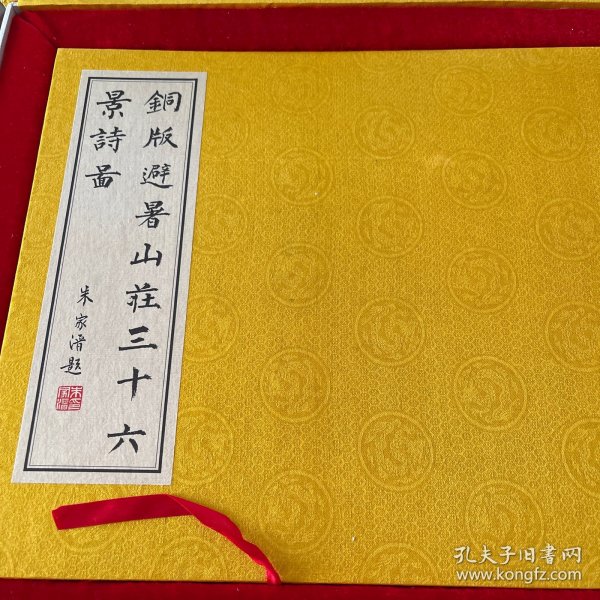 銅版避暑山莊三十六
景詩圖
朱家溍題
孔夫子旧書网
www.kongfz.com